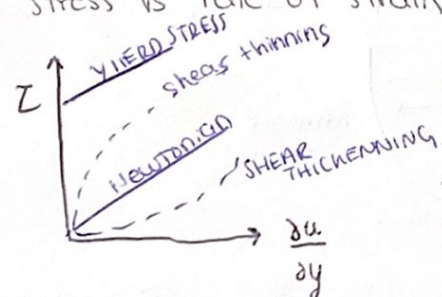 STRESS VS RATE OF STRAIN
YIELD STRESS
shear thinning
τ
Newtonian
SHEAR
THICKENNING
∂u
∂y